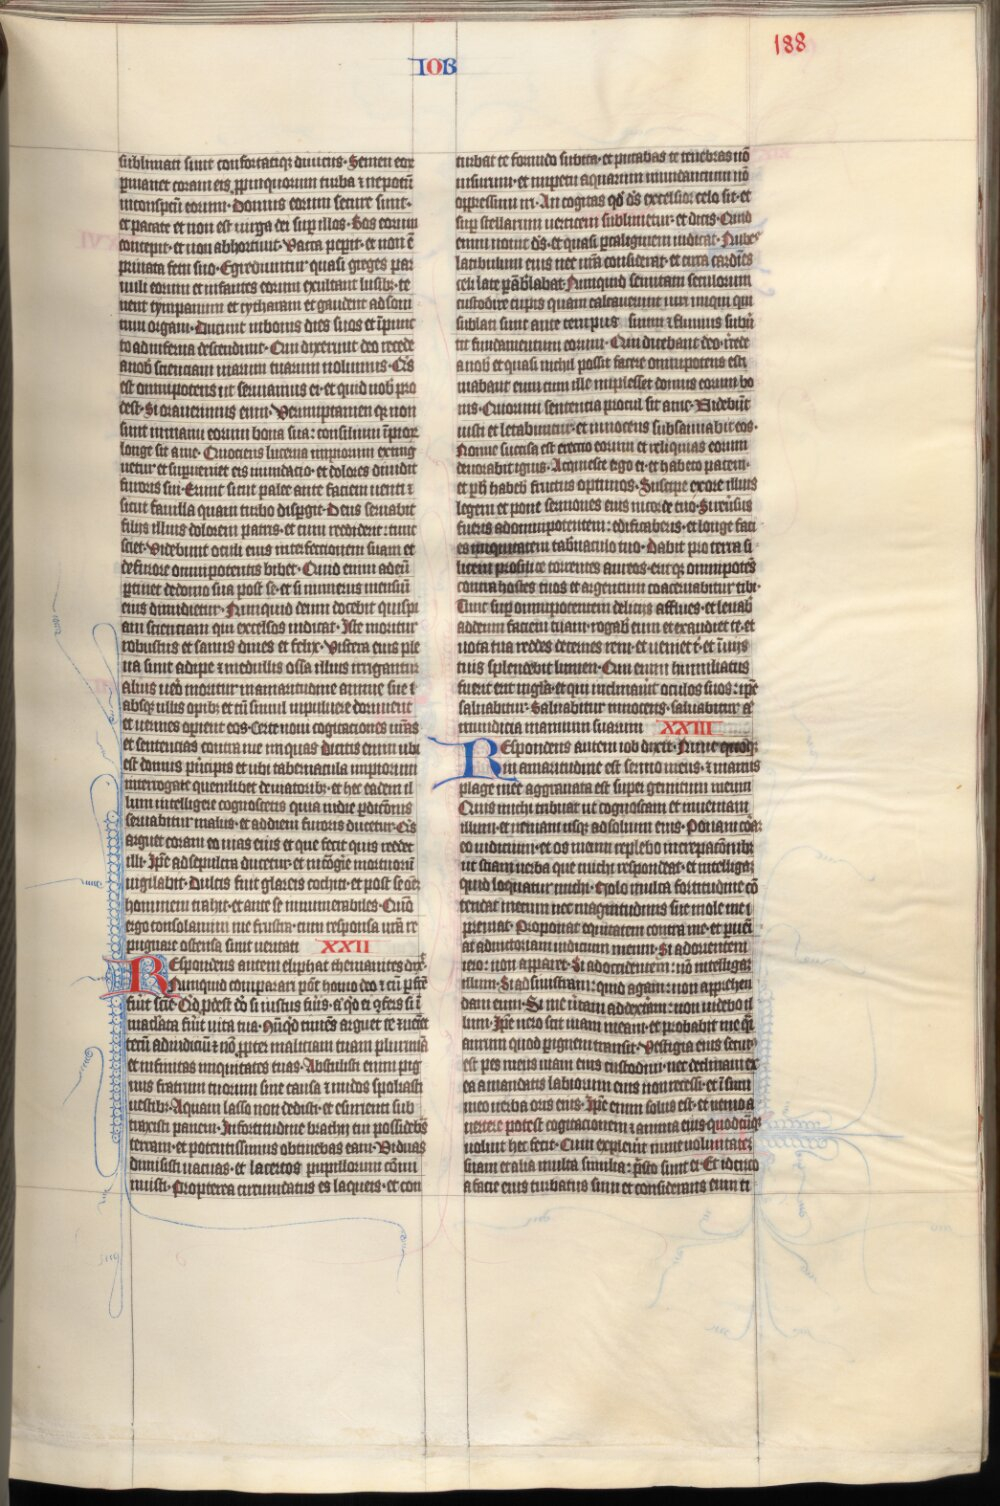 188
IOB
sublimati sunt confortatiq; diuiciis· Semen eoꝝ
ꝑmanet coram eis ꝓpinquorum turba ⁊ nepotū
inconspcū eorum· Domus eorum secure sunt·
et pacate et non est uirga dei suꝑ illos· Bos eorum
concepit· et non abhortiuit· Vacca peꝑit· et non ē
priuata fetu suo· Egrediuntur quasi greges par
uuli eorum et infantes eorum exultant lusibꝫ· te
nent tympanum et cytharam et gaudent ad soni
tum organi· Ducunt in bonis dies suos et ī puuc
to ad inferna descendunt· Qui dixerunt deo recede
a nob scienciam uiarum tuarum nolumus· Q̄s
est omnipotens ut seruiamus ei· et quid nob pro
dest· Si orauerimus eum· Verumptamen q̄ non
sunt in manu eorum bona sua: consilium īpioꝝ
longe sit a me· Quociens lucerna impiorum exting
uetur et suꝑueniet eis inundacio· et dolores diuidit
furoris sui· Erunt sicut palee ante faciem uenti ⁊
sicut fauilla quam turbo disꝑgit· Deus seruabit
filiis illius dolorem patris· et cum reddiderit: tunc
sciet· Videbunt oculi eius interfectionem suam et
de furore omnipotentis bibet· Quid enim ad eū
ꝑtinet de domo sua post se· et si numerus mensiū
eius dimidietur· Nunquid deum docebit quispi
am scienciam qui excelsos iudicat· Iste moritur
robustus et sanus diues et felix· Viscera eius ple
na sunt adipe ⁊ medullis ossa illius irrigantur
alius ueo moritur in amaritudine anime sue ⁊
absq; ullis opibꝫ et tn̄ simul in puluere dormient
et uermes oꝑient eos· Certe noui cogitaciones ur̄as
et sentencias contra me iniquas· Dicitis enim ubi
est domus pr̄incipis et ubi tabernacula impiorum
interrogate quemlibet de uiatoribꝫ· et hec eadem il
lum intelligere cognoscetis quia in die ꝑdiconis
seruabitur malus· et ad diem furoris ducetur· Q̄s
arguet coram eo uias eius et que fecit quis reddet
illi· Ip̄e ad sepulcra ducetur· et in congie mortuorū
uigilabit· Dulcis fuit glareis cochiti· et post se oē
hominem trahit· et ante se innumerabiles· Quō
ergo consolamini me frustra· cum responsa ur̄a re
pugnare ostensa sint ueritati XXII
Respondens autem eliphat themanites dix̄·
Nunquid comparari pōt homo deo ⁊ cū ꝑfc̄e
fūit scīe· Qd̄ ꝓdest dō si iustus fūis· a' qd̄ ei q̄fers si ī
maculata fūit uita tua· Nūqd̄ timēs arguet te ⁊ ueīet
tecū ad iudiciū ⁊ nō ꝓpter maliciam tuam plurimā
et infinitas iniquitates tuas· Abstulisti enim pig
nus fratrum tuorum sine causa ⁊ nudos spoliasti
uestibꝫ· Aquam lasso non dedisti· et esurienti sub
traxisti panem· In fortitudine brachii tui possidebas
terram· et potentissimus obtinebas eam· Viduas
dimisisti uacuas· et lacertos pupillorum cōmi
nuisti· Propterea circumdatus es laqueis· et con
turbat te formido subita· et putabas te tenebras nō
uisurum· et impetu aquarum inundantium nō
opp̄ressum iri· An cogitas qd̄ ds̄ excelsior celo sit· et
suꝑ stellarum uerticem sublimetur· et dicis· Quid
enim nouit ds̄· et quasi ꝑ caliginem iudicat· Nubes
latibulum eius nec nr̄a considerat· et circa cardīes
celi late ꝑābulabat· Nunquid semitam seculorum
custodire cupis quam calcauerunt uiri iniqui qui
sublati sunt ante tempus suum ⁊ fluuius subū
tit fundamentum eorum· Qui dicebant deo· r̄ecede
a nob et quasi nichil possit facere omnipotens esti
mabant eum cum ille implesset domus eorum bo
nis· Quorum sentencia procul sit a me· Videbūt
iusti et letabuntur· et innocens subsannabit eos·
Nonne succisa est erectio eorum et reliquias eorum
deuorabit ignis· Acquiesce ergo ei· et habeto pacem·
et ꝑ h̄ habeb fructus optimos· Suscipe ex ore illius
legem et pone sermones eius in corde tuo· Si reūsus
fueris ad omnipotentem: edificaberis· et longe faci
es iniquitatem tab̄naculo tuo· Dabit pro terra si
licem pro silice torrentes aureos· eritq; omnipotēs
contra hostes tuos et argentum coaceruabitur tibi·
Tunc suꝑ omnipotentem deliciis afflues· et leuab
ad deum faciem tuam· rogab eum et exaudiet te· et
uota tua reddes decernes rem· et ueniet t̄· et ī uiis
tuis splendebit lumen· Qui enim humiliatus
fuerit erit in gl̄a· et qui inclinauit oculos suos: ip̄e
saluabitur· Saluabitur innocens· saluabitur ā
mundicia manuum suarum XXIII
Respondens autem iob dixit· Nunc quoq;
in amaritudine est sermo meus· ⁊ manus
plage mee aggrauata est super gemitum meum
Quis michi tribuat ut cognoscam et inueniam
illum· et ueniam usq; ad solium eius· Ponam corā
eo iudicium· et os meum replebo increpaconibꝫ
ut sciam uerba que michi respondeat· et intelligaꝫ
quid loquatur michi· Nolo multa fortitudine cō
tendat mecum nec magnitudinis sue mole me ꝑ
premat· Proponat equitatem contra me· et ꝑueī
at ad uictoriam iudicium meum· Si ad orientem
iero: non apparet· Si ad occidentem: nō intelligaꝫ
illum· Si ad sinistram: quid agam: non apprehen
dam eum· Si me ūtam ad dextām: non uidebo il
lum· Ip̄e uero scit uiam meam· et probabit me q̄i
aurum quod ꝑ ignem transit· Vestigia eius secut'
est pes meus uiam eius custodiui· nec declinaui ex
ea a mandatis labiorum eius non recessi· et ī sinu
meo uerba oris eius· Ip̄e enim solus est· et nemo a
uertere potest cogitacionem ⁊ anima eius quodcūq;
uoluit hec fecit· Cum expleūit in me uoluntateꝫ
suam et alia multa similia: p̄sto sunt ei· Et idcirco
a facie eius turbatus sum et considerans eum ti